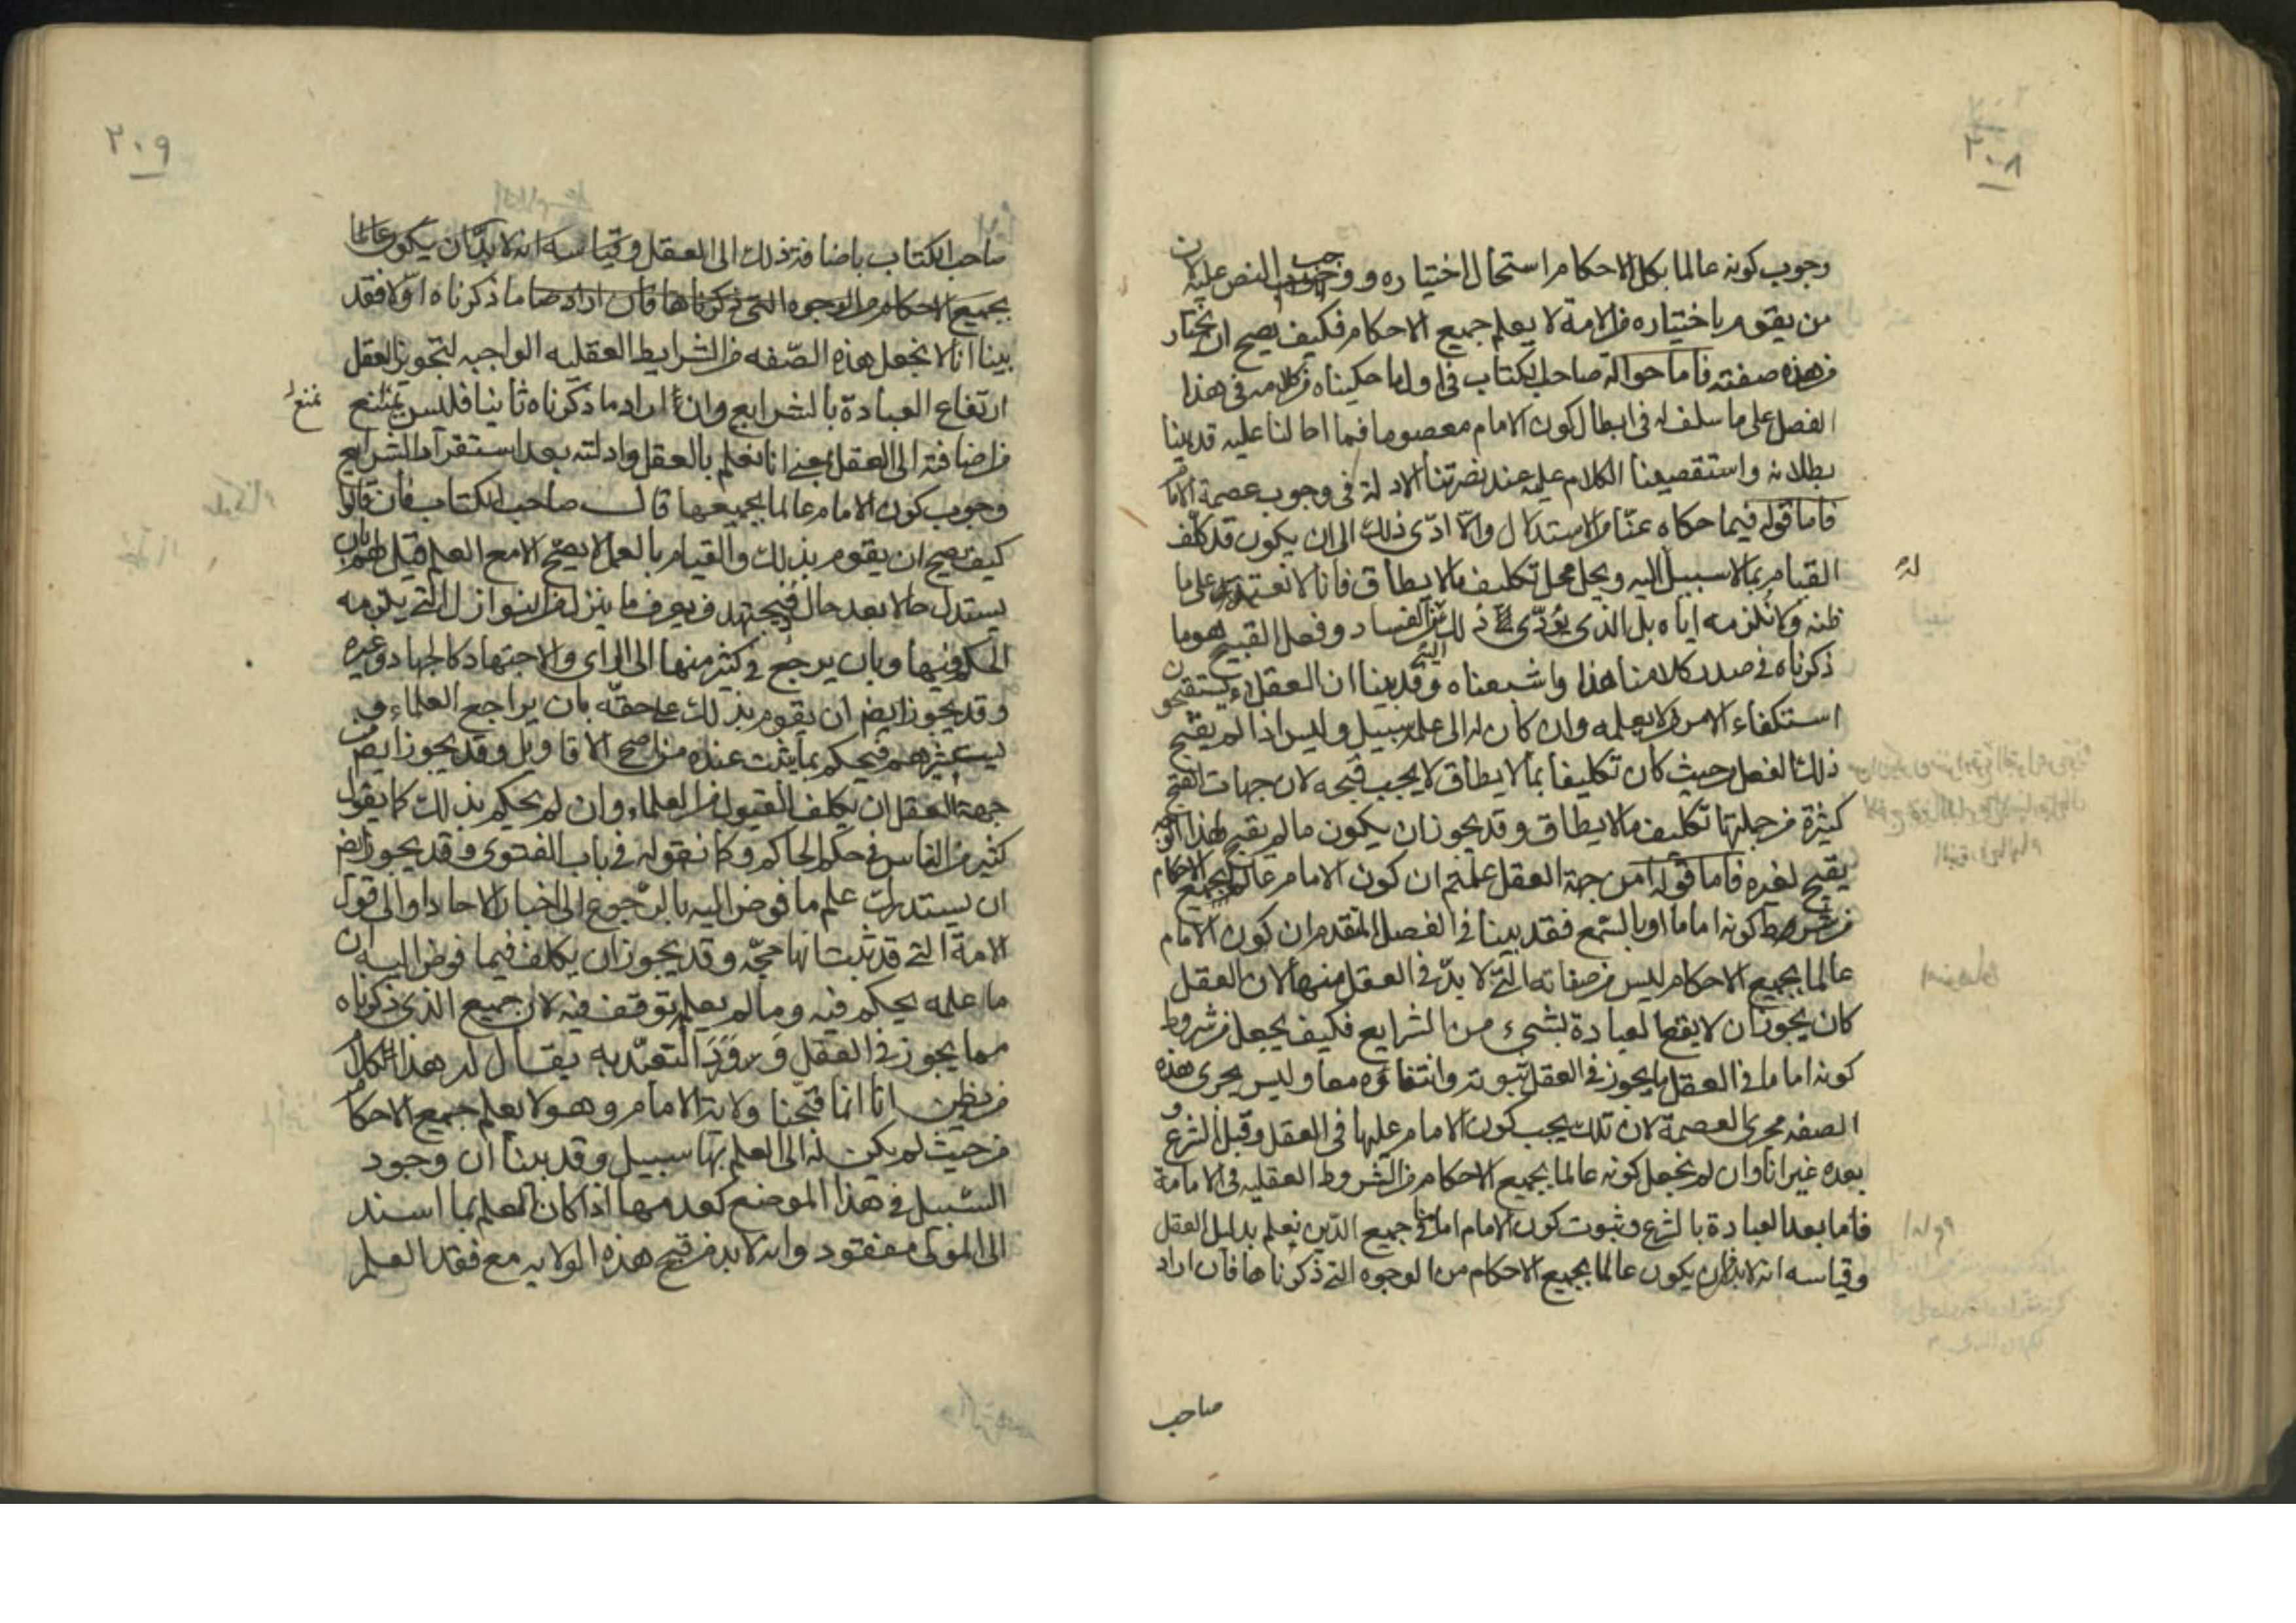 ٢٠٨
وجوب كونه عالما بكل الاحكام استحال اختياره ووجب النص عليه لان
من يقوم باختياره من الامة لا يعلم جميع الاحكام فكيف يصح ان يختار
من هذه صفته فاما حوالة صاحب الكتاب في اول ما حكيناه من كلامه في هذا
الفصل على ما سلف له في ابطال كون الامام معصوما فما احالنا عليه قد بينا
بطلانه واستقصينا الكلام عليه عند نصرتنا الادلة في وجوب عصمة الامام
فاما قوله فيما حكاه عنا من الاستدلال والا ادى ذلك الى ان يكون قد كلف
القيام بما لا سبيل له اليه ويحل محل تكليف ما لا يطاق فانا لا نعتمد على ما
ظنه ولا نلزمه اياه بل الذى يؤدى الى ذلك من الفساد وفعل القبيح هو ما
ذكرناه في صدر كلامنا هذا واشبعناه وقد بينا ان العقلاء يستقبحون
استكفاء الامر من لا يعلمه وان كان له الى علمه سبيل وليس اذا لم يقبح
ذلك الفعل من حيث كان تكليفا بما لا يطاق لا يجب قبحه لان جهات القبح
كثيرة من جملتها تكليف ما لا يطاق وقد يجوز ان يكون ما لم يقبح لهذا الوجه
يقبح لغيره فاما قوله امن جهة العقل علمتم ان كون الامام عالما بجميع الاحكام
من شرط كونه اماما او بالسمع فقد بينا في الفصل المتقدم ان كون الامام
عالما بجميع الاحكام ليس من صفاته التى لا بد في العقل منها لان العقل
كان يجوز ان لا يقع العبادة بشيء من الشرايع فكيف يجعل من شروط
كونه اماما في العقل ما يجوز في العقل ثبوته وانتفاؤه معا وليس يجرى هذه
الصفه مجرى العصمة لان تلك يجب كون الامام عليها في العقل وقبل الشرع و
بعده غير انا وان لم نجعل كونه عالما بجميع الاحكام من الشروط العقليه في الامامة
فاما بعد العبادة بالشرع وثبوت كون الامام اماما في جميع الدين نعلم بدليل العقل
وقياسه انه لا بد من ان يكون عالما بجميع الاحكام من الوجوه التى ذكرناها فان اراد
له
صاحب
٢٠٩
صاحب الكتاب باضافة ذلك الى العقل وقياسه انه لا بد ان يكون عالما
بجميع الاحكام من الوجوه التى ذكرناها فان اراد ما ذكرناه اولا فقد
بينا انا لا نجعل هذه الصفه من الشرايط العقليه الواجبه لتجويز العقل
ارتفاع العبادة بالشرايع وان اراد ما ذكرناه ثانيا فليس يمتنع
من اضافته الى العقل بمعنى انا نعلم بالعقل وادلته بعد استقرار الشرايع
وجوب كون الامام عالما بجميعها قال صاحب الكتاب فان قالوا
كيف يصح ان يقوم بذلك والقيام بالعمل لا يصح الا مع العلم قيل لهم بان
يستدل حالا بعد حال فيجتهد فيعرف ما ينزل من النوازل التى يلزمه
الحكم فيها وبان يرجع في كثير منها الى الراى والاجتهاد كالجهاد وغيره
وقد يجوز ايضا ان يقوم بذلك على حقه بان يراجع العلماء و
يستشيرهم فيحكم بما يثبت عنده من اصح الاقاويل وقد يجوز ايضا من
جهة العقل ان يكلف القبول من العلماء وان لم يحكم بذلك كما يقول
كثير من الناس في حكم الحاكم وكما نقوله في باب الفتوى وقد يجوز ايضا
ان يستدرك علم ما فوض اليه بالرجوع الى اخبار الاحاد او الى قول
الامة التى قد ثبت انها حجة وقد يجوز ان يكلف فيما فوض اليه ان
ما علمه يحكم فيه وما لم يعلم يتوقف فيه لان جميع الذى ذكرناه
مما يجوز في العقل ورود التعبد به يقال له هذا الكلام
من يظن انا انما قبحنا ولاية الامام وهو لا يعلم جميع الاحكام
من حيث لم يكن له الى العلم بها سبيل وقد بينا ان وجود
السبيل في هذا الموضع كعدمها اذا كان العلم بما اسند
الى المولى مفقود وانه لا بد من قبح هذه الولايه مع فقد العلم
نمنع